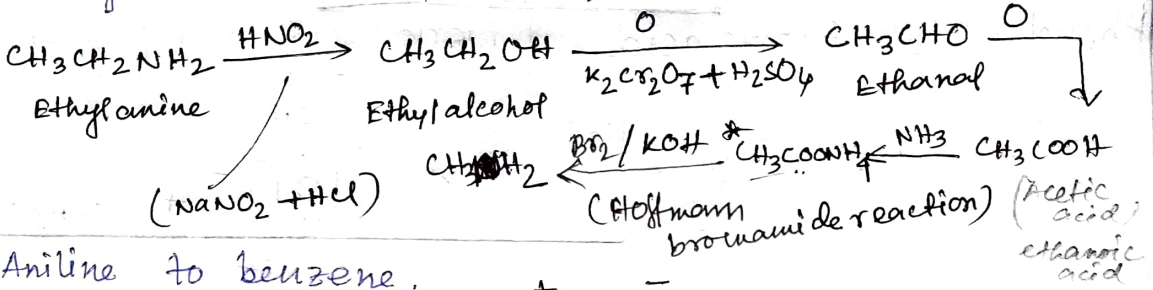 CH3CH2NH2 —HNO2→ CH3CH2OH —O / K2Cr2O7+H2SO4→ CH3CHO —O
Ethylamine Ethyl alcohol Ethanal
(NaNO2+HCl)
Br2/KOH *CH3COONH4 NH3 CH3COOH
(Hoffmann bromamide reaction) (Acetic acid)
ethanoic acid
Aniline to benzene.